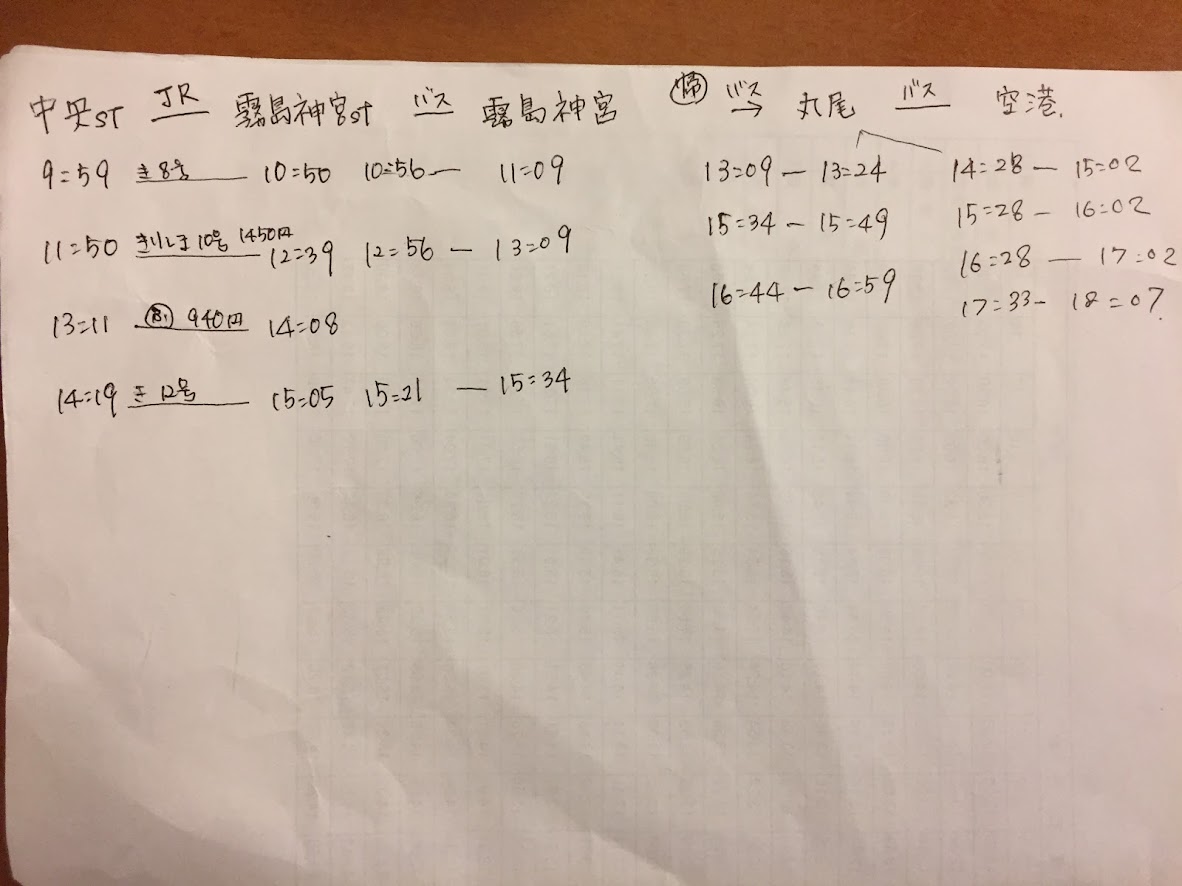 中央ST JR 霧島神宮ST バス 霧島神宮
9=59 き8号 10=50 10=56 — 11=09
11=50 きりしま10号 1450円 12=39 12=56 — 13=09
13=11 940円 14=08
14=19 き12号 15=05 15=21 — 15=34
帰 バス → 丸尾 バス 空港.
13=09 — 13=24 14=28 — 15=02
15=34 — 15=49 15=28 — 16=02
16=44 — 16=59 16=28 — 17=02
17=33 — 18=07.